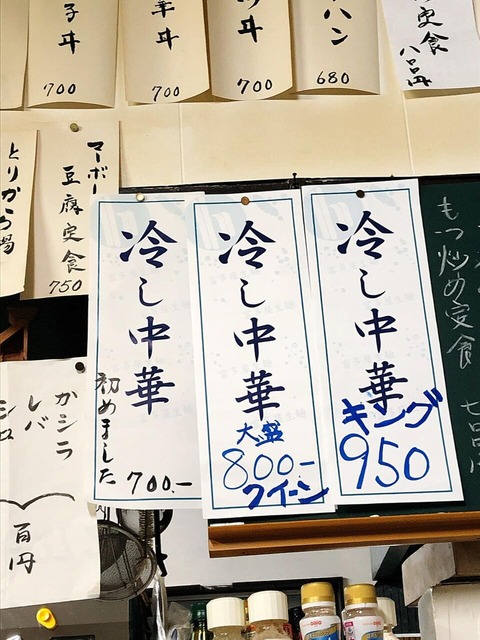 子丼
700
華丼
700
丼
700
ハン
680
定食
八百円
とりから揚
マーボー
豆腐定食
750
冷し中華
初めました
700.-
冷し中華
大盛
800-
クイーン
冷し中華
キング
950
もつ炒め定食
カシラ
レバ
シロ
百円